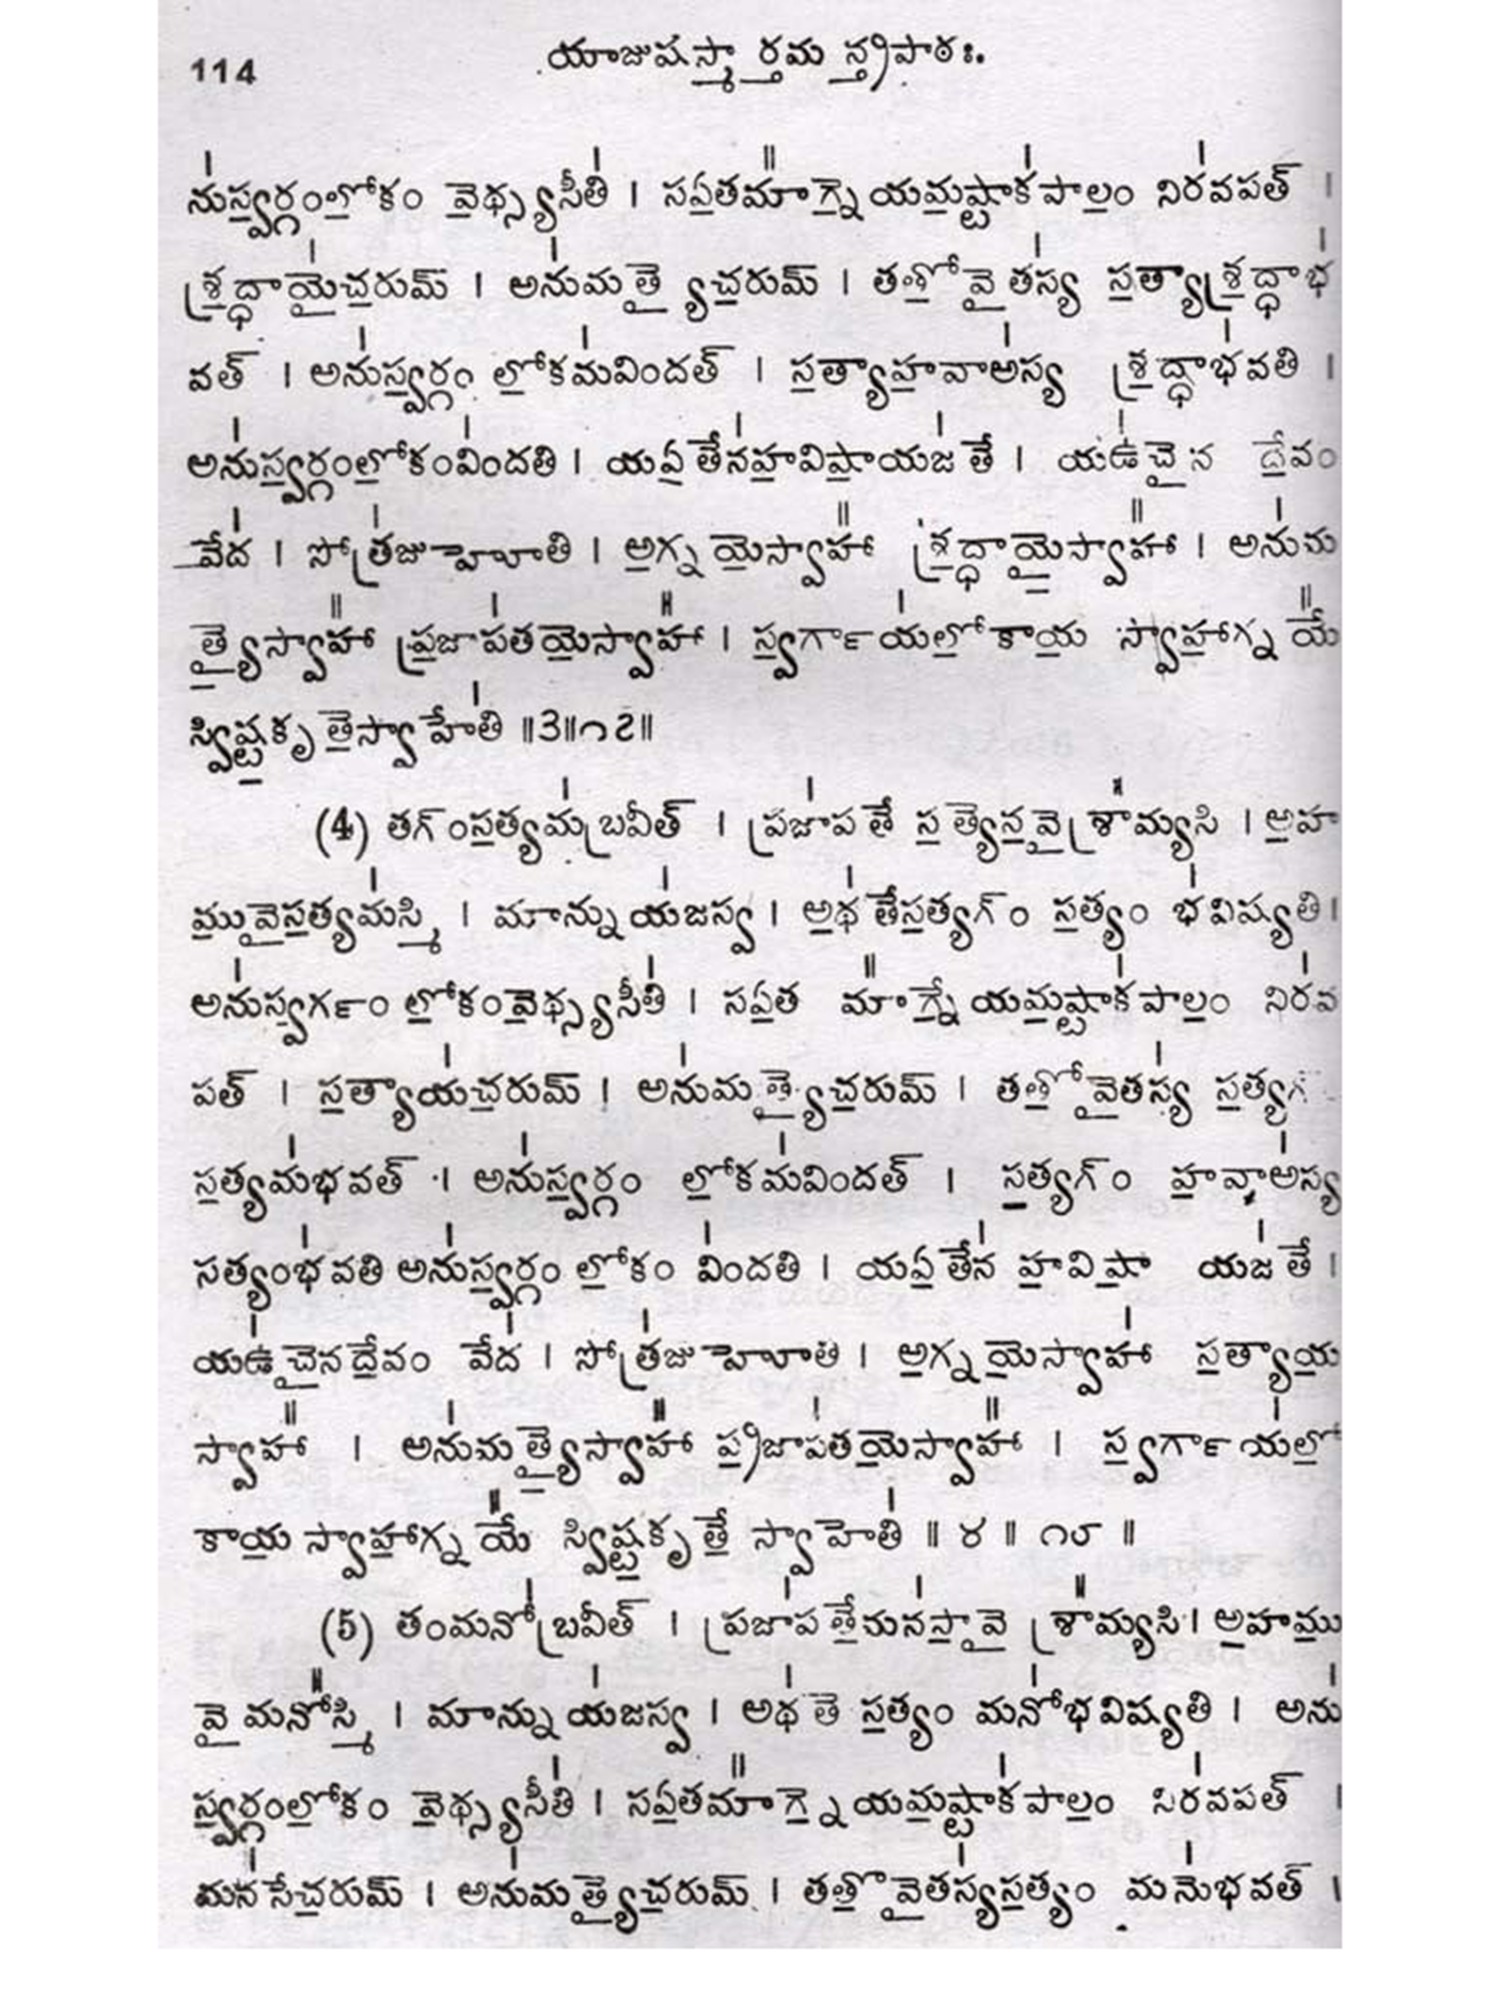 114
యాజుషస్మార్తమన్త్రపాఠః.
నుస్వర్గంలోకం వెథ్స్యసీతి । సఏతమాగ్నెయమష్టాకపాలం నిరవపత్ ।
శ్రద్ధాయైచరుమ్ । అనుమత్యైచరుమ్ । తతోవైతస్య సత్యాశ్రద్ధాభ
వత్ । అనుస్వర్గం లోకమవిందత్ । సత్యాహవాఅస్య శ్రద్ధాభవతి ।
అనుస్వర్గంలోకంవిందతి । యఏతేనహవిషాయజతే । యఉచైన దేవం
వేద । సోత్రజుహోతి । అగ్నయెస్వాహా శ్రద్ధాయైస్వాహా । అనుమ
త్యైస్వాహా ప్రజాపతయెస్వాహా । స్వర్గాయలోకాయ స్వాహాగ్నయే
స్విష్టకృతెస్వాహేతి ॥3॥౧౭॥
(4) తగ్ంసత్యమబ్రవీత్ । ప్రజాపతే సత్యెనవైశ్రామ్యసి । అహ
మువైసత్యమస్మి । మాన్నుయజస్వ । అథతేసత్యగ్ం సత్యం భవిష్యతి।
అనుస్వర్గం లోకంవెథ్స్యసీతి । సఏత మాగ్నేయమష్టాకపాలం నిరవ
పత్ । సత్యాయచరుమ్ । అనుమత్యైచరుమ్ । తతోవైతస్య సత్యగ్
సత్యమభవత్ । అనుస్వర్గం లోకమవిందత్ । సత్యగ్ం హవాఅస్య
సత్యంభవతి అనుస్వర్గం లోకం విందతి । యఏతేన హవిషా యజతే ।
యఉచైనదేవం వేద । సోత్రజుహోతి । అగ్నయెస్వాహా సత్యాయ
స్వాహా । అనుమత్యైస్వాహా ప్రజాపతయెస్వాహా । స్వర్గాయలో
కాయ స్వాహాగ్నయే స్విష్టకృతే స్వాహెతి ॥ ౪ ॥ ౧౮ ॥
(5) తంమనోబ్రవీత్ । ప్రజాపతేమనసావై శ్రామ్యసి। అహము
వై మనోస్మి । మాన్నుయజస్వ । అథతె సత్యం మనోభవిష్యతి । అను
స్వర్గంలోకం వెథ్స్యసీతి । సఏతమాగ్నెయమష్టాకపాలం నిరవపత్ ।
మనసేచరుమ్ । అనుమత్యైచరుమ్ । తతొవైతస్యసత్యం మనుభవత్ ।